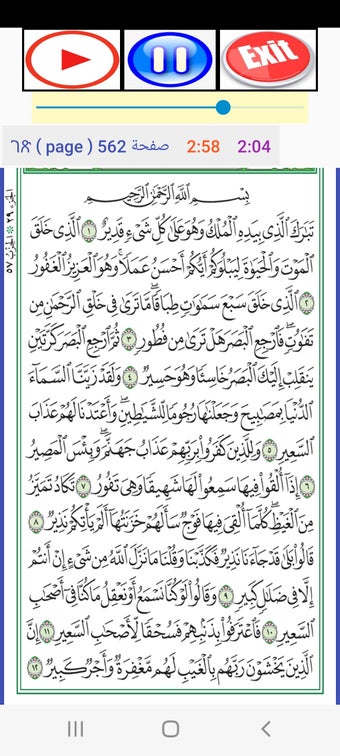 Exit
ገጽ ( page ) 562 صفحة 2:58 2:04
الجزء ٢٩ الحزب ٥٧
بِسْمِ ٱللَّهِ ٱلرَّحْمَٰنِ ٱلرَّحِيمِ
تَبَٰرَكَ ٱلَّذِى بِيَدِهِ ٱلْمُلْكُ وَهُوَ عَلَىٰ كُلِّ شَىْءٍ قَدِيرٌ ١ ٱلَّذِى خَلَقَ
ٱلْمَوْتَ وَٱلْحَيَوٰةَ لِيَبْلُوَكُمْ أَيُّكُمْ أَحْسَنُ عَمَلًا ۚ وَهُوَ ٱلْعَزِيزُ ٱلْغَفُورُ
٢ ٱلَّذِى خَلَقَ سَبْعَ سَمَٰوَٰتٍ طِبَاقًا ۖ مَّا تَرَىٰ فِى خَلْقِ ٱلرَّحْمَٰنِ مِن
تَفَٰوُتٍ ۖ فَٱرْجِعِ ٱلْبَصَرَ هَلْ تَرَىٰ مِن فُطُورٍ ٣ ثُمَّ ٱرْجِعِ ٱلْبَصَرَ كَرَّتَيْنِ
يَنقَلِبْ إِلَيْكَ ٱلْبَصَرُ خَاسِئًا وَهُوَ حَسِيرٌ ٤ وَلَقَدْ زَيَّنَّا ٱلسَّمَآءَ
ٱلدُّنْيَا بِمَصَٰبِيحَ وَجَعَلْنَٰهَا رُجُومًا لِّلشَّيَٰطِينِ ۖ وَأَعْتَدْنَا لَهُمْ عَذَابَ
ٱلسَّعِيرِ ٥ وَلِلَّذِينَ كَفَرُوا۟ بِرَبِّهِمْ عَذَابُ جَهَنَّمَ ۖ وَبِئْسَ ٱلْمَصِيرُ
٦ إِذَآ أُلْقُوا۟ فِيهَا سَمِعُوا۟ لَهَا شَهِيقًا وَهِىَ تَفُورُ ٧ تَكَادُ تَمَيَّزُ
مِنَ ٱلْغَيْظِ ۖ كُلَّمَآ أُلْقِىَ فِيهَا فَوْجٌ سَأَلَهُمْ خَزَنَتُهَآ أَلَمْ يَأْتِكُمْ نَذِيرٌ ٨
قَالُوا۟ بَلَىٰ قَدْ جَآءَنَا نَذِيرٌ فَكَذَّبْنَا وَقُلْنَا مَا نَزَّلَ ٱللَّهُ مِن شَىْءٍ إِنْ أَنتُمْ
إِلَّا فِى ضَلَٰلٍ كَبِيرٍ ٩ وَقَالُوا۟ لَوْ كُنَّا نَسْمَعُ أَوْ نَعْقِلُ مَا كُنَّا فِىٓ أَصْحَٰبِ
ٱلسَّعِيرِ ١٠ فَٱعْتَرَفُوا۟ بِذَنۢبِهِمْ فَسُحْقًا لِّأَصْحَٰبِ ٱلسَّعِيرِ ١١ إِنَّ
ٱلَّذِينَ يَخْشَوْنَ رَبَّهُم بِٱلْغَيْبِ لَهُم مَّغْفِرَةٌ وَأَجْرٌ كَبِيرٌ ١٢